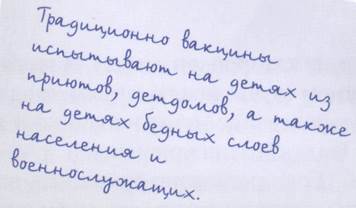 Традиционно вакцины
испытывают на детях из
приютов, детдомов, а также
на детях бедных слоев
населения и
военнослужащих.